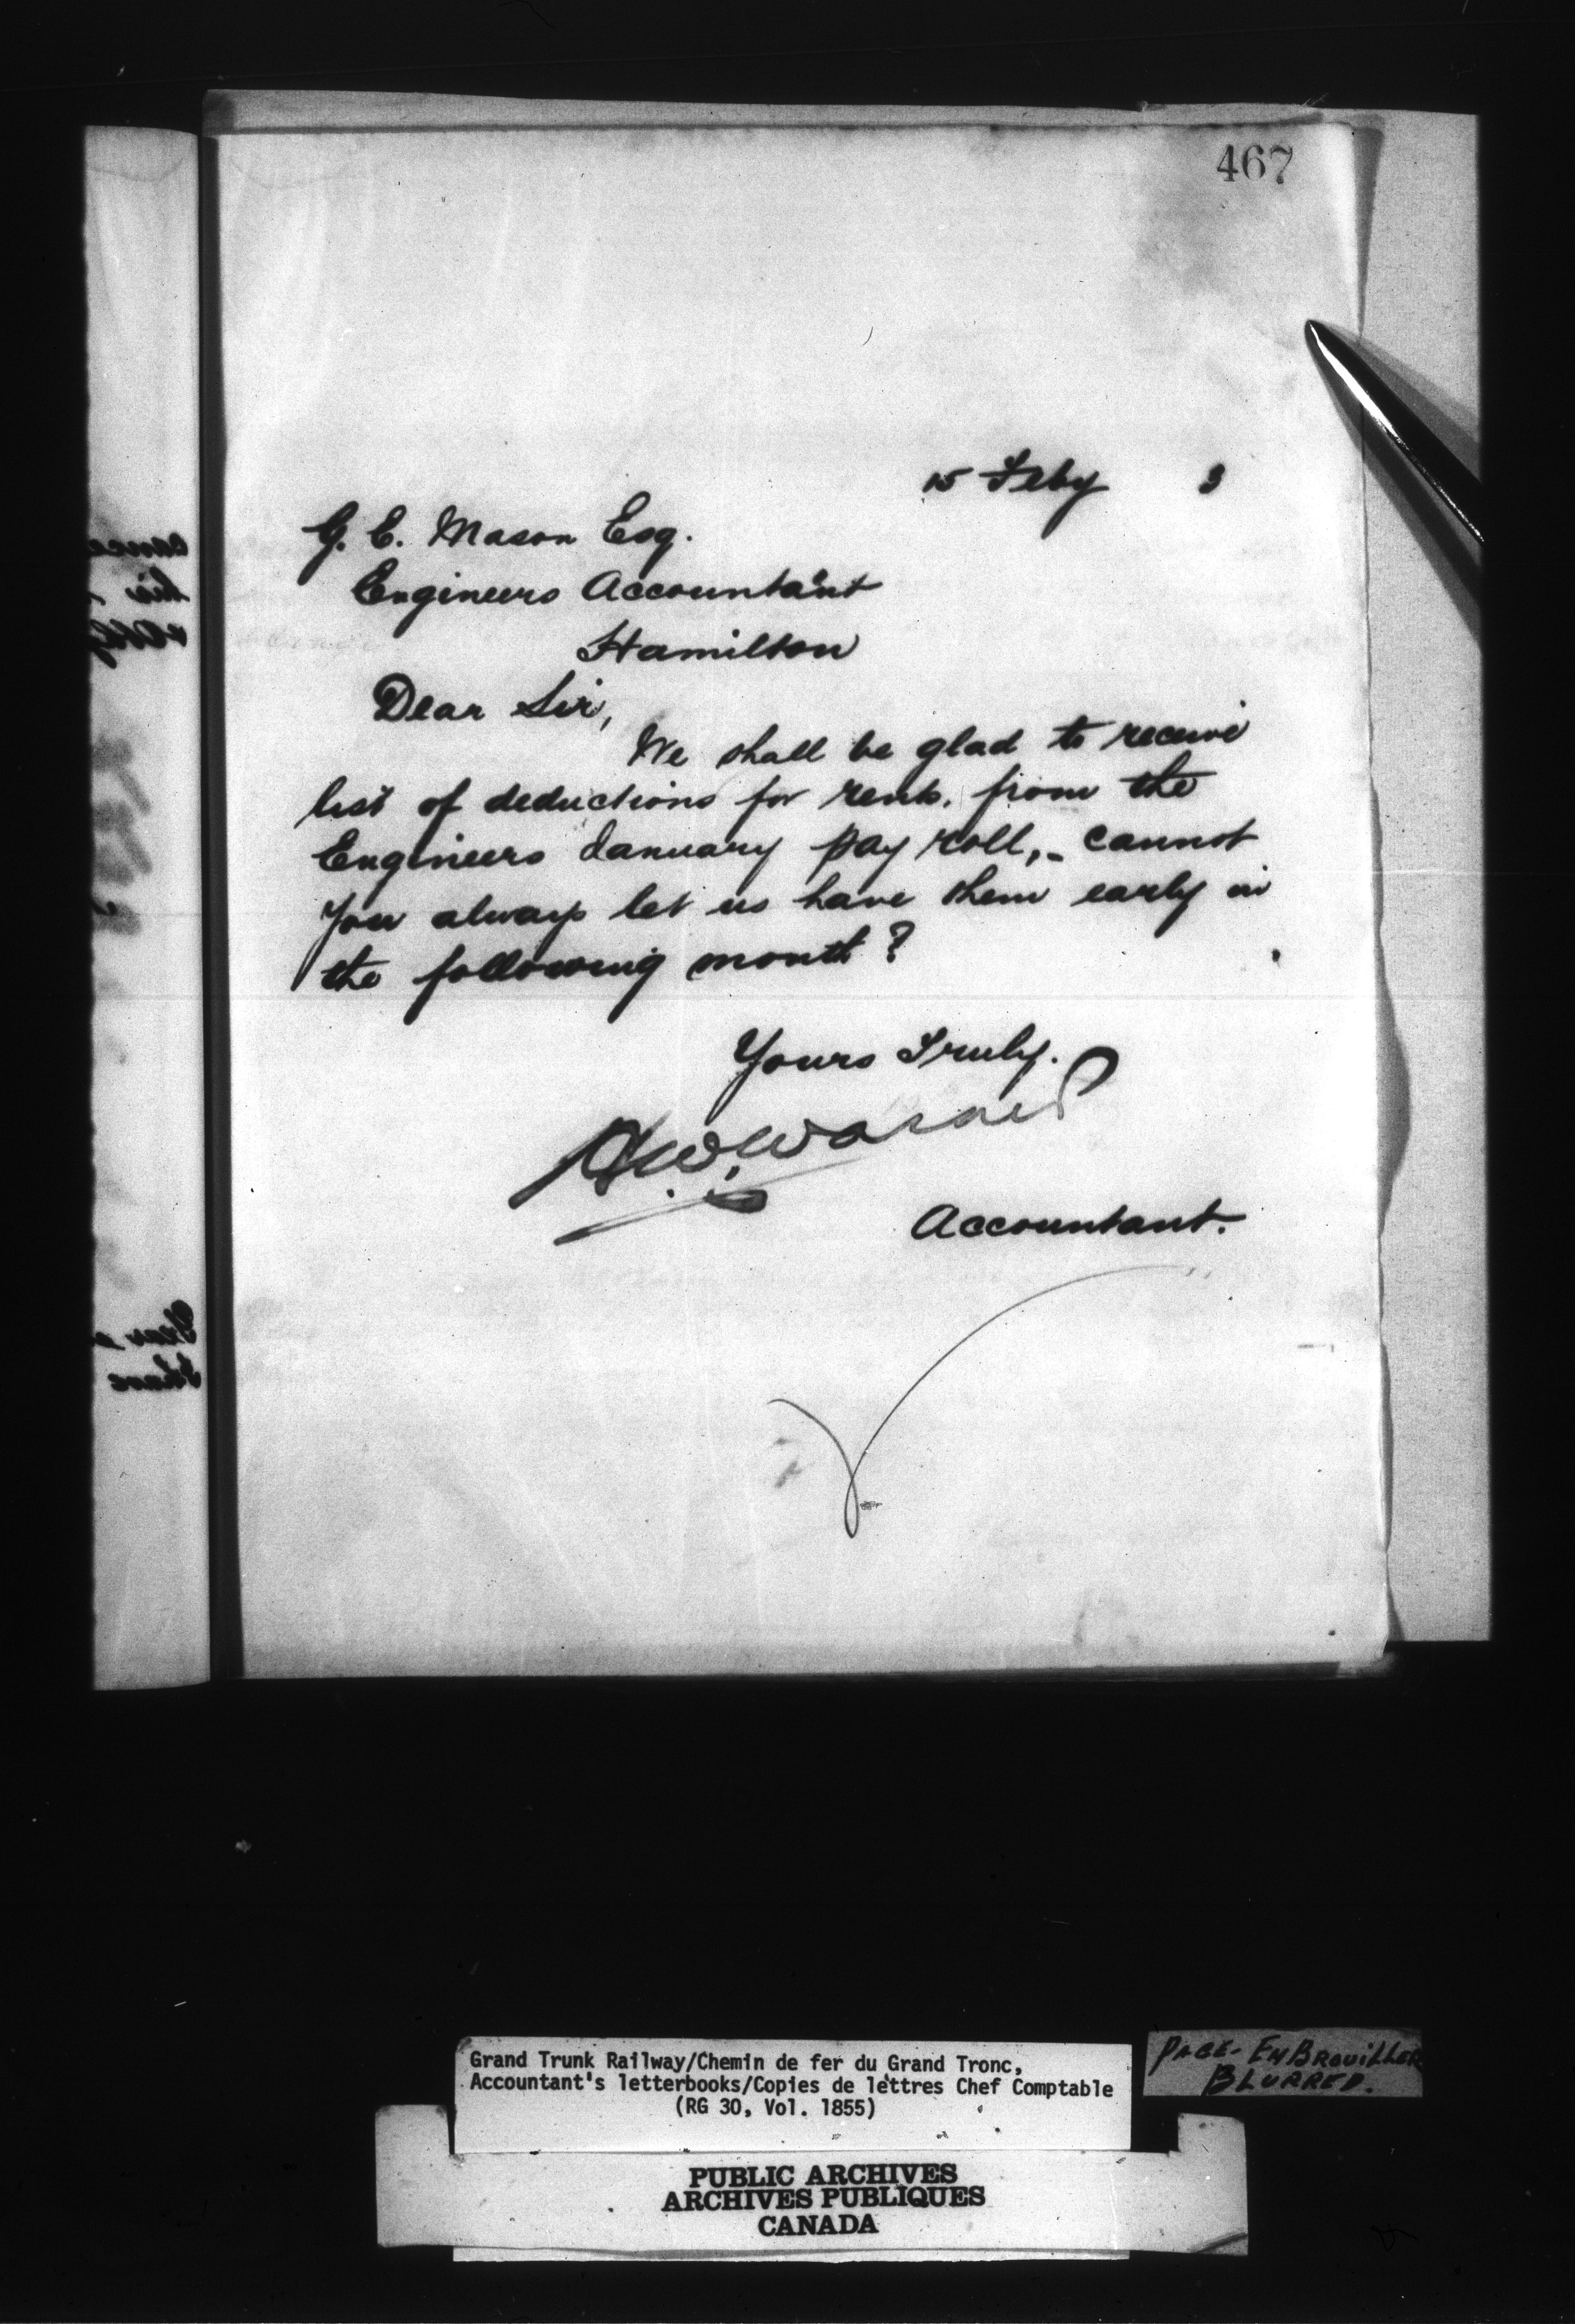 467
15 Feby 3
G. C. Mason Esq.
Engineers Accountant
Hamilton
Dear Sir,
We shall be glad to receive
list of deductions for rents, from the
Engineers January pay roll,- cannot
you always let us have them early in
the following month?
Yours Truly.
H.W. Warner
Accountant.
Grand Trunk Railway/Chemin de fer du Grand Tronc,
Accountant's letterbooks/Copies de lettres Chef Comptable
(RG 30, Vol. 1855)
PAGE- EMBROUILLER
BLURRED.
PUBLIC ARCHIVES
ARCHIVES PUBLIQUES
CANADA